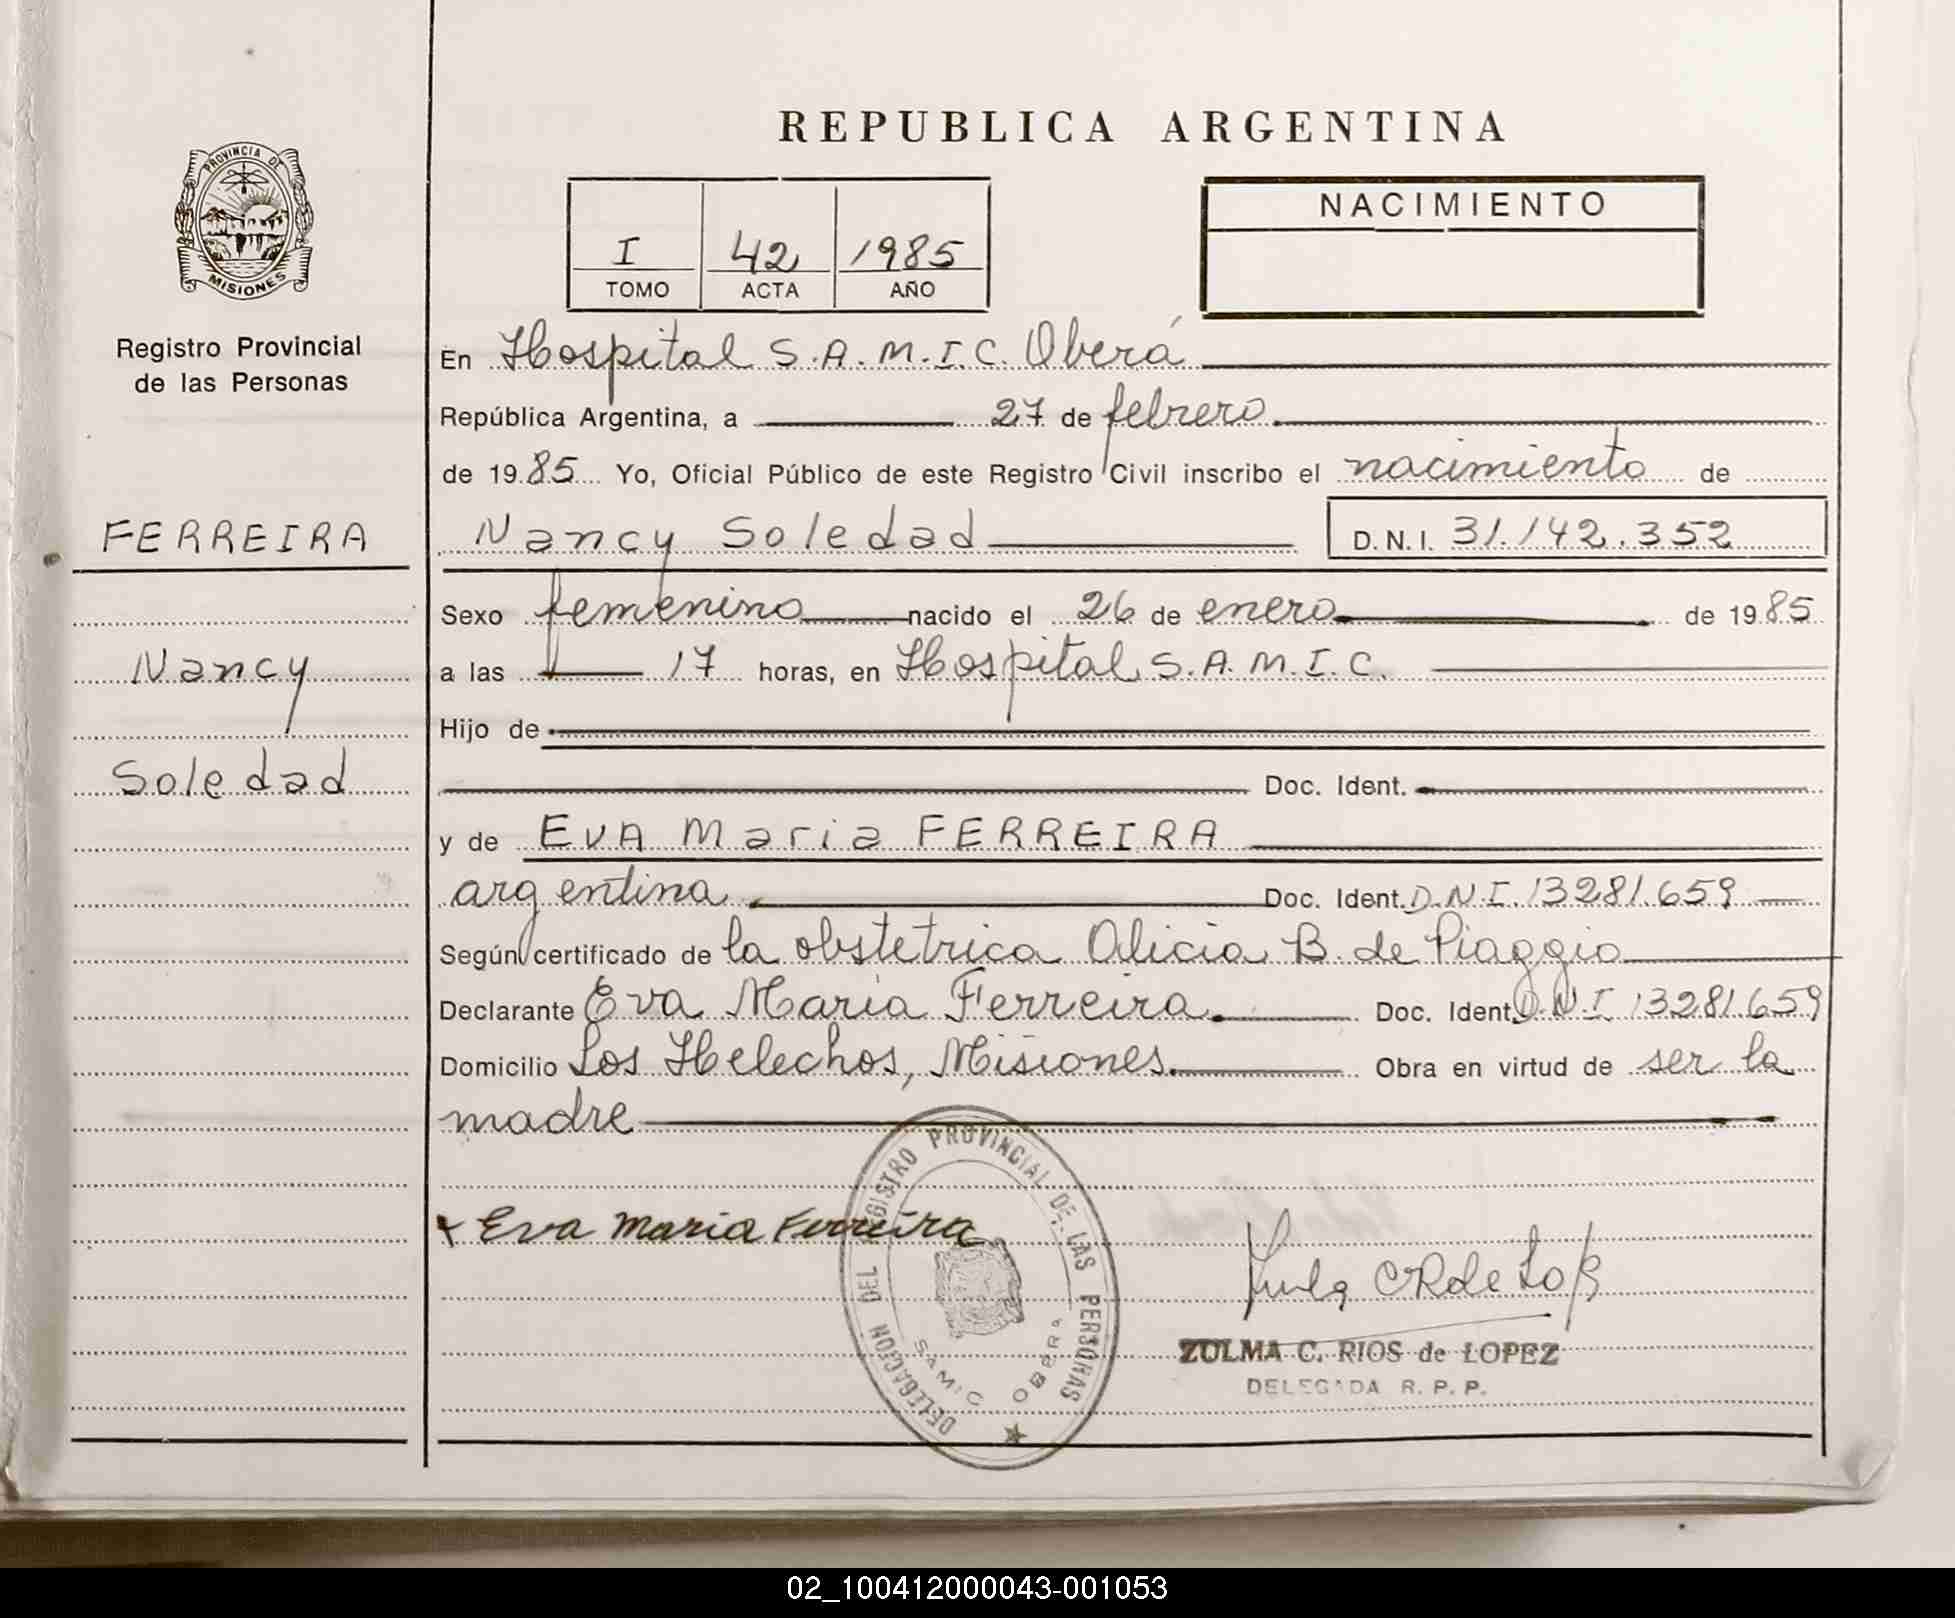 REPUBLICA ARGENTINA
PROVINCIA DE
MISIONES
Registro Provincial
de las Personas
I 42 1985
TOMO ACTA AÑO
NACIMIENTO
En Hospital S.A.M.I.C. Oberá
República Argentina, a 27 de febrero
de 1985 Yo, Oficial Público de este Registro Civil inscribo el nacimiento de
FERREIRA
Nancy
Soledad
Nancy Soledad D.N.I. 31.142.352
Sexo femenino nacido el 26 de enero de 1985
a las 17 horas, en Hospital S.A.M.I.C.
Hijo de
Doc. Ident.
y de EVA Maria FERREIRA
argentina Doc. Ident. D.N.I. 13281.659
Según certificado de la obstetrica Alicia B. de Piaggio
Declarante Eva María Ferreira Doc. Ident. D.N.I. 13281.659
Domicilio Los Helechos, Misiones Obra en virtud de ser la
madre
x Eva Maria Ferreira
DELEGACION DEL REGISTRO PROVINCIAL DE LAS PERSONAS
SAMIC OBERA
ZULMA C. RIOS de LOPEZ
DELEGADA R. P. P.
02_100412000043-001053